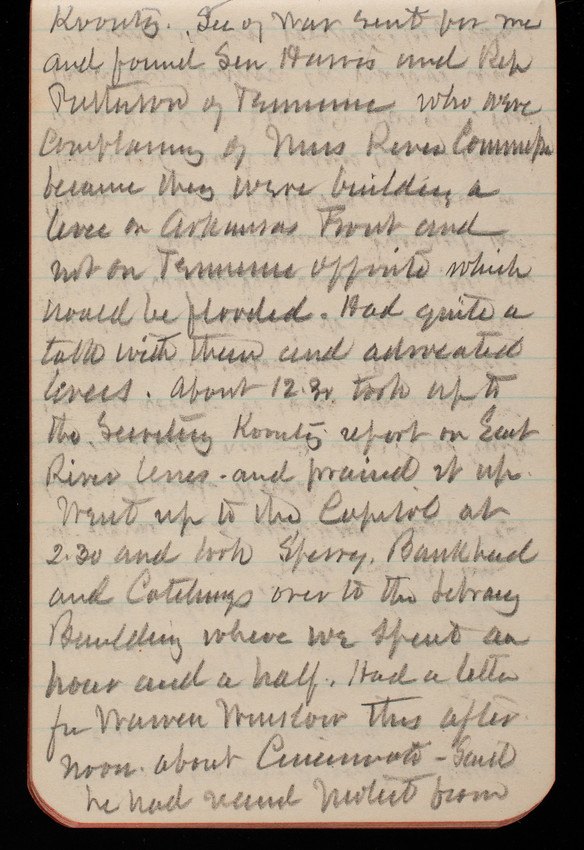 Koontz. Sec of War sent for me
and found Sen Harris and Rep
Patterson of Tennessee who were
complaining of Miss River
because they were building a
levee on Arkansas Front and
not on Tennessee opposite which
would be flooded. Had quite a
talk with them and advocated
levees. About 12.30 took up to
the Secretary Koontz report on East
River lines - and praised it up.
Went up to the Capitol at
2.30 and took Sperry, Bankhead
and Catchings over to the Library
Building where we spent an
hour and a half. Had a letter
fr Warren Winslow this after
noon about Cincinnati - Said
he had recund protest from